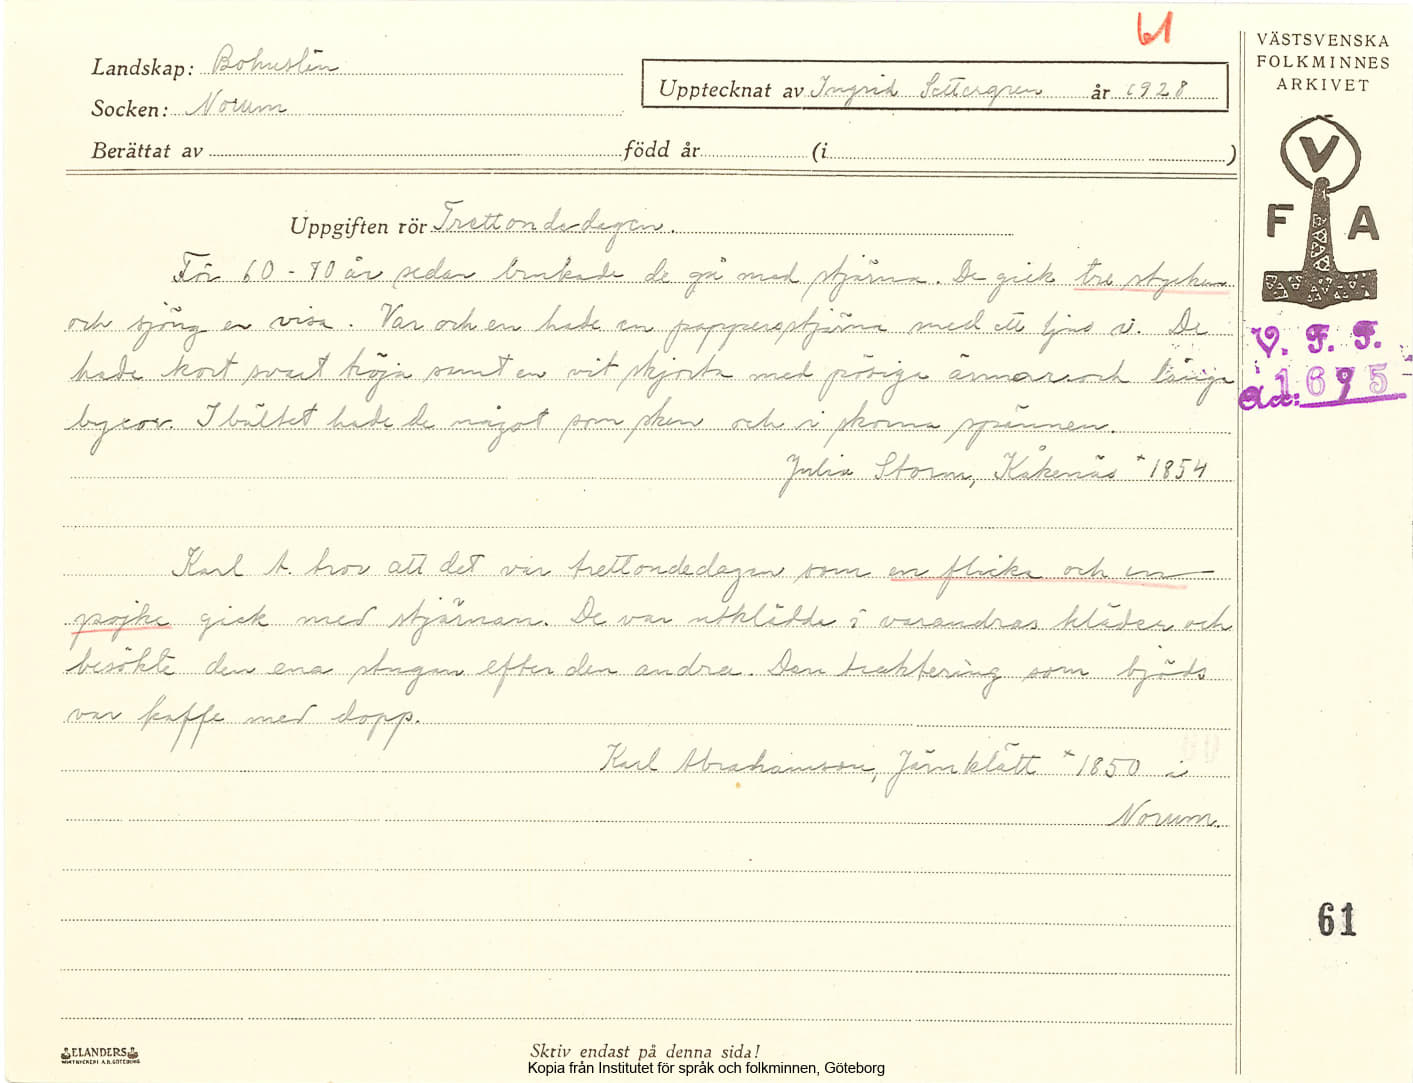 61
Landskap: Bohuslän
Socken: Norum
Upptecknat av Ingrid Settergren år 1928
Berättat av född år (i )
VÄSTSVENSKA
FOLKMINNES
ARKIVET
V
F A
V. F. F.
1695
Uppgiften rör Trettondedagen.
För 60-70 år sedan brukade de gå med stjärna. De gick tre stycken
och sjöng en visa. Var och en hade en pappersstjärna med ett ljus i. De
hade kort svart tröja samt en vit skjorta med pösiga ärmar och långa
byxor. I bältet hade de något som sken och i skorna spännen.
Julia Storm, Kåkenäs * 1854
Karl A. tror att det var trettondedagen som en flicka och en
pojke gick med stjärnan. De var utklädda i varandras kläder och
besökte den ena stugan efter den andra. Den traktering som bjöds
var kaffe med dopp.
Karl Abrahamsson, Järnklätt * 1850 i
Norum.
61
ELANDERS
Skriv endast på denna sida!
Kopia från Institutet för språk och folkminnen, Göteborg